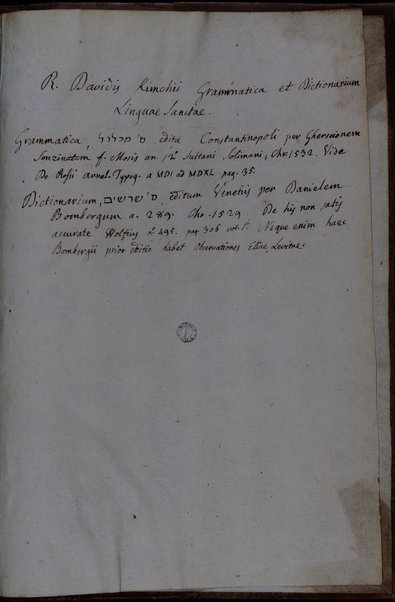 R. Davidis Kimchii Grammatica et Dictionarium
Linguae Sanctae.
Grammatica, ס׳ מכלול edita Constantinopoli per Ghersconem
Sonzinatem f. Mosis an. 12. Sultani Solimani, Chr. 1532. Vide
De Rossi Annal. Typog. a MDI ad MDXL pag. 35.
Dictionarium, ס׳ שרשים, editum Venetiis per Danielem
Bombergum a. 289. Chr. 1529. De his non satis
accurate Wolfius n.º 495. pag. 306 vol. 1.º Neque enim haec
Bombergii prior editio habet observationes Eliae Levitae.